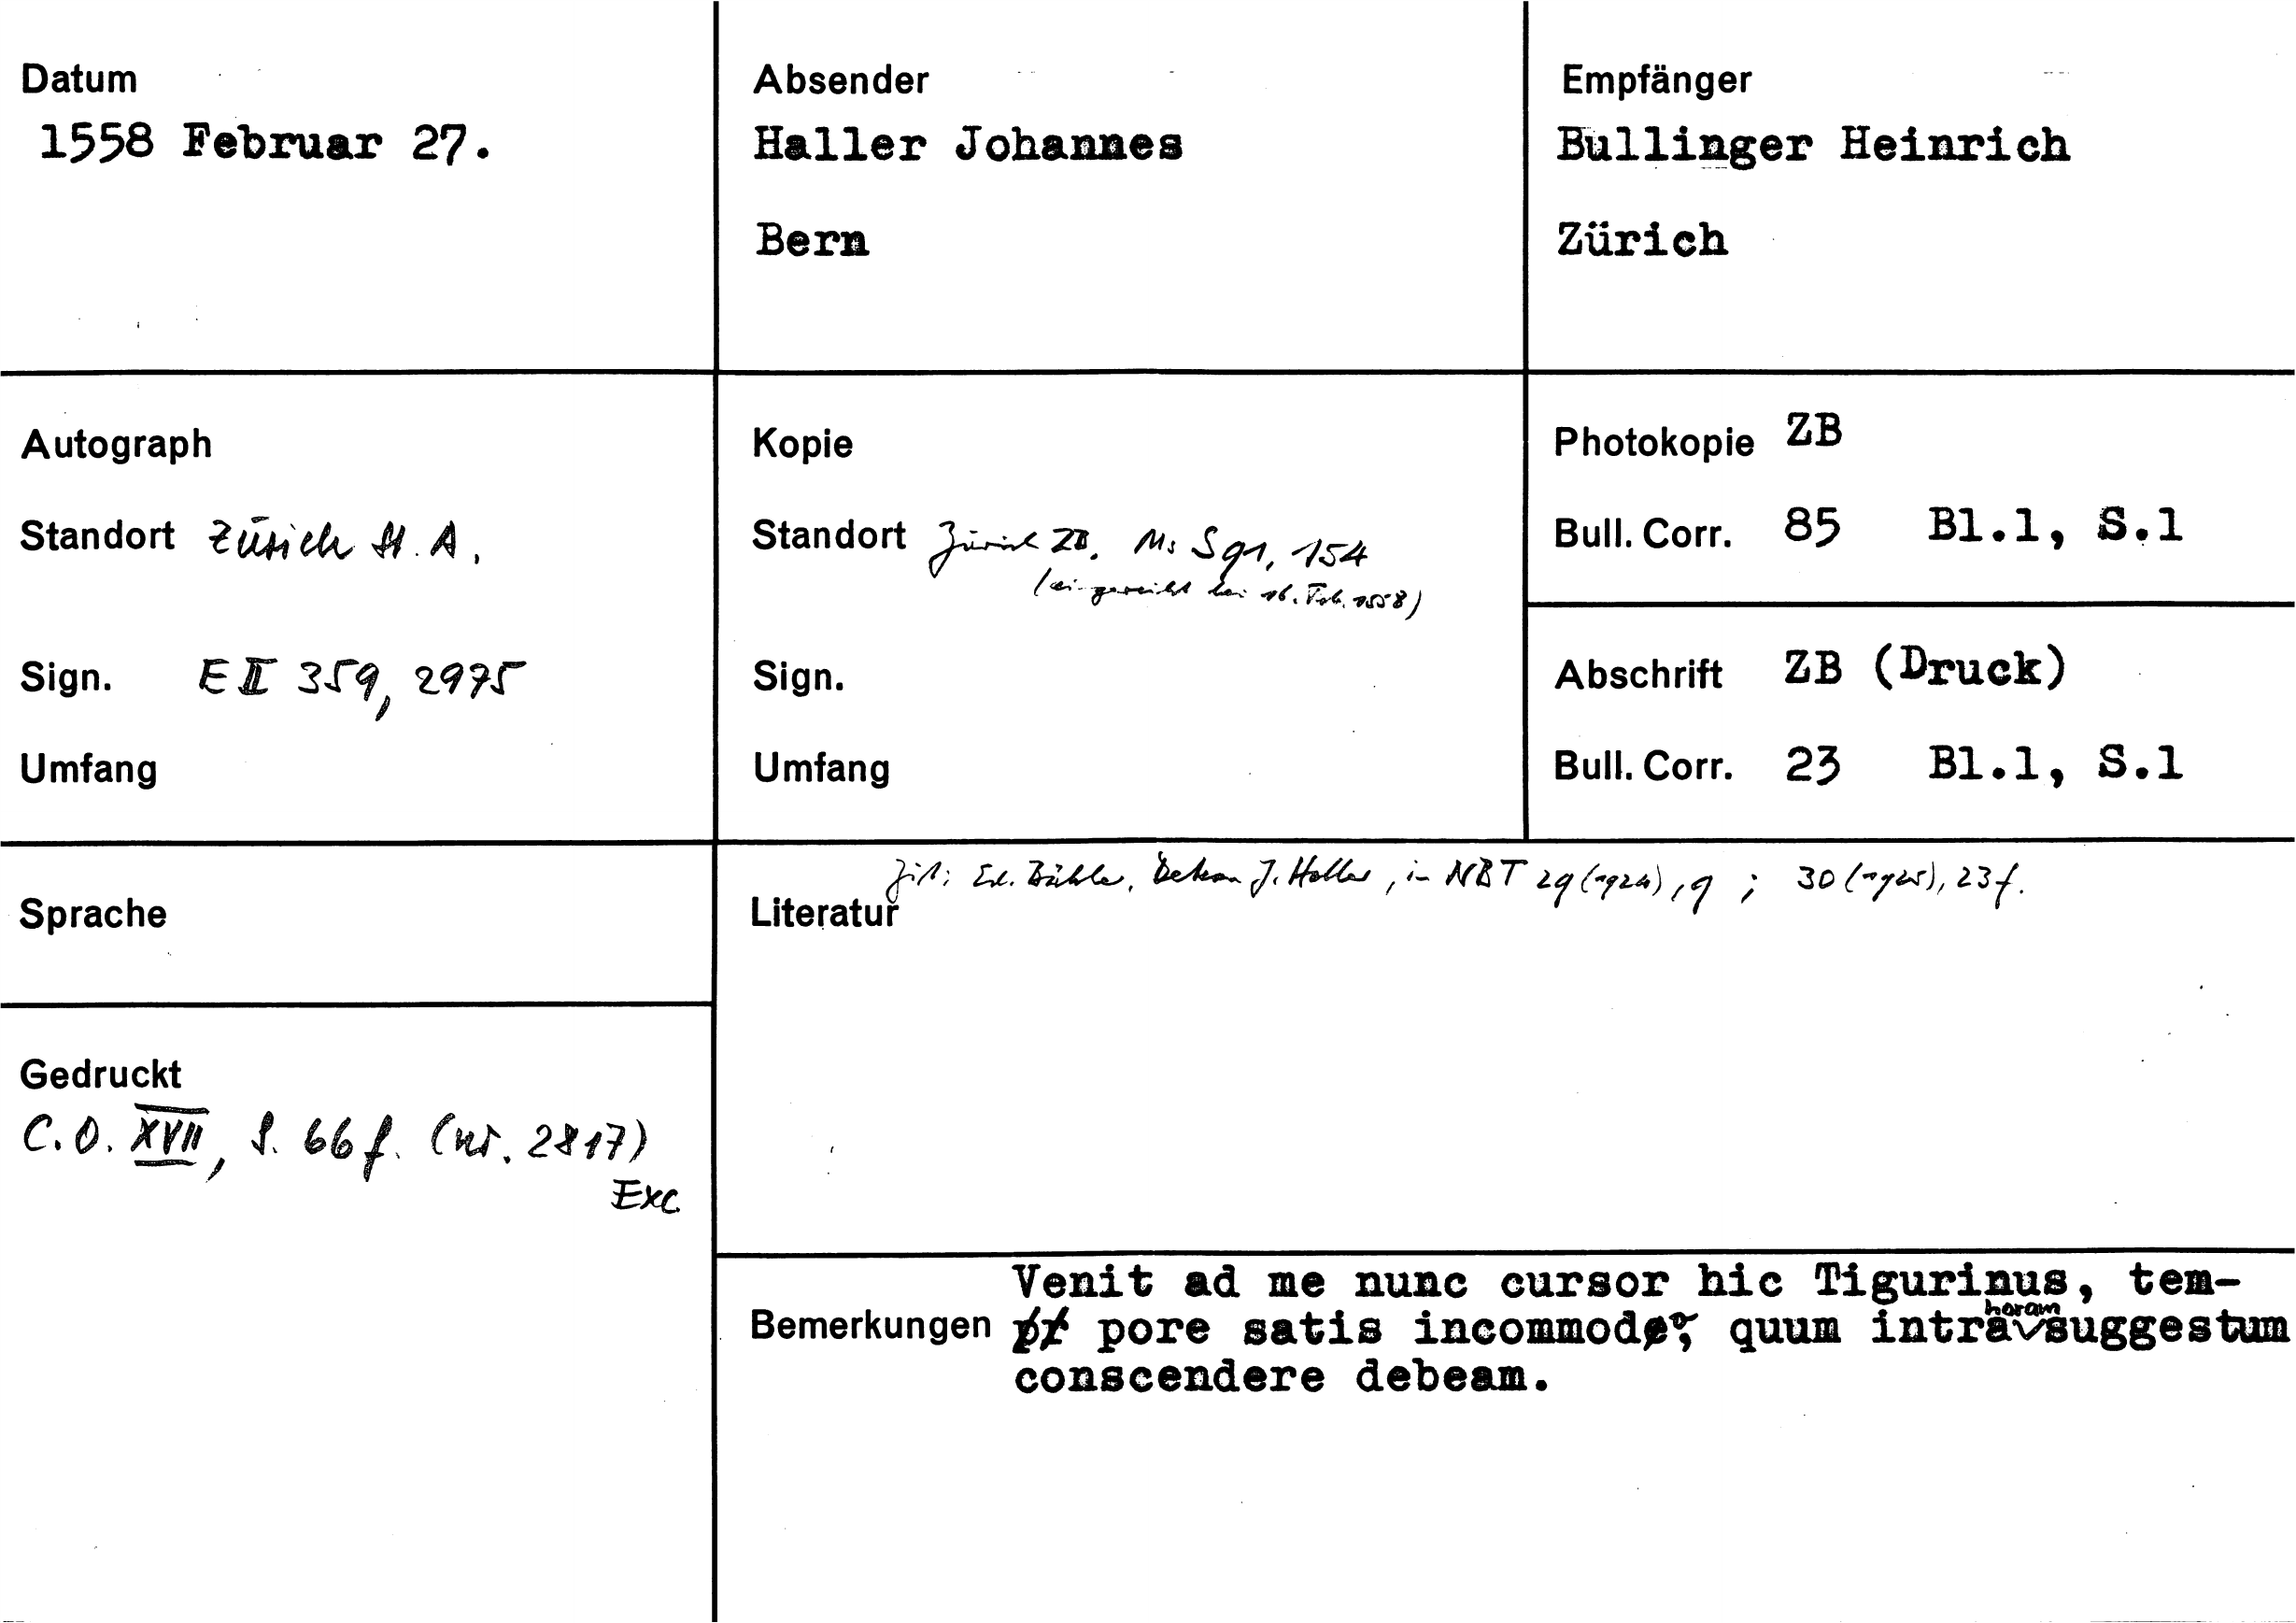 Datum
1558 Februar 27.
Absender
Haller Johannes
Bern
Empfänger
Bullinger Heinrich
Zürich
Autograph
Standort Zürich St. A.
Sign. E II 359, 2975
Umfang
Kopie
Standort Zürich ZB. Ms S 91, 154
(eingereiht bei 16. Feb. 1558)
Sign.
Umfang
Photokopie ZB
Bull. Corr. 85 Bl.1, S.1
Abschrift ZB (Druck)
Bull. Corr. 23 Bl.1, S.1
Sprache
Gedruckt
C.O. XVII, S. 66 f. (nr. 2817)
Exc.
Zit: Ed. Bähler, Dekan J. Haller, in NBT 29 (1924), 9 ; 30 (1925), 23 f.
Literatur
Bemerkungen
Venit ad me nunc cursor hic Tigurinus, tem-
pore satis incommodo, quum intra horam suggestum
conscendere debeam.